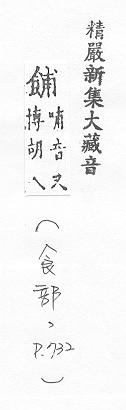 精嚴新集大藏音
餔
哺音又
搏胡
(食部、P.732)